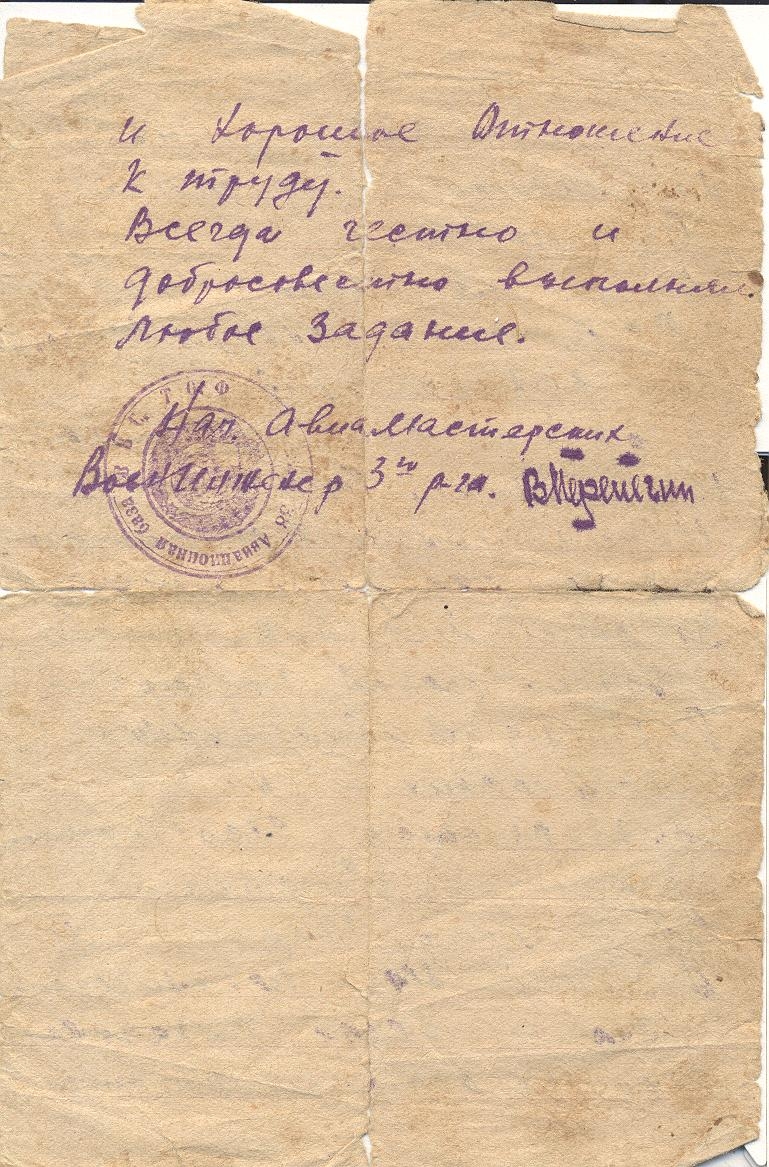 и хорошое Отношение
к труду.
Всегда честно и
добросовестно выполнял
любое Задание.
Нач. Авиамастерских
Воен Инженер 3го р-га.
38 Авиационная база